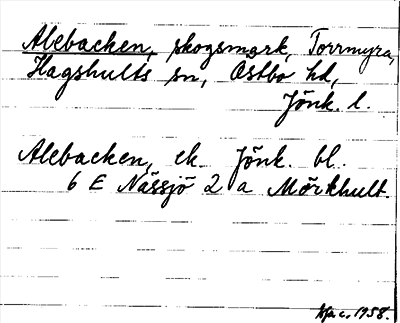 Alebacken, skogsmark, Torrmyra,
Hagshults sn, Östbo hd,
Jönk. l.
Alebacken, ek. Jönk. bl.
6 E Nässjö 2 a Mörkhult.
1958.